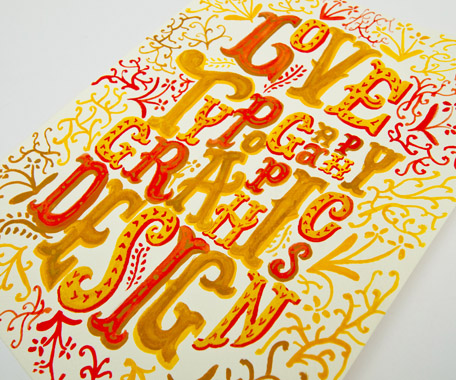 LOVE
TYPOGRAPHY
GRAPHIC
DESIGN